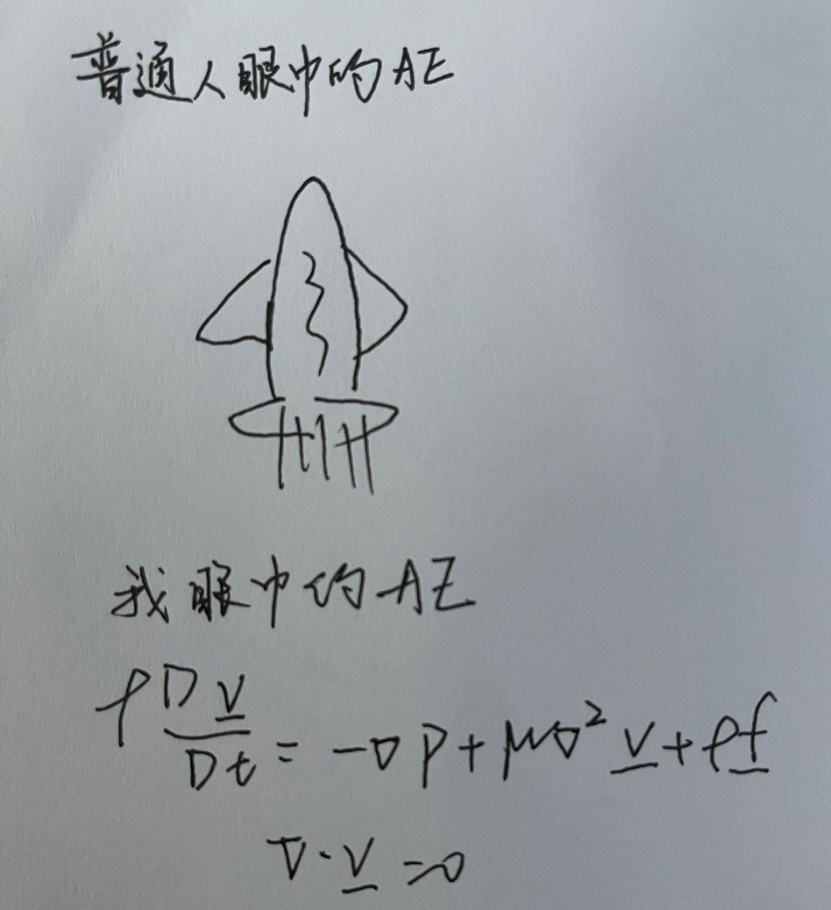 普通人眼中的AE
我眼中的AE
ρ Dv/Dt = -∇p + μ∇²v + ρf
∇·v = 0